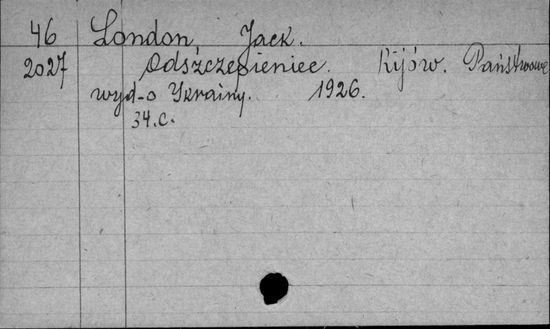 46 London Jack.
2027 Odszczepieniec. Kijów. Państwowe
wyd-o Ukrainy. 1926.
34.c.